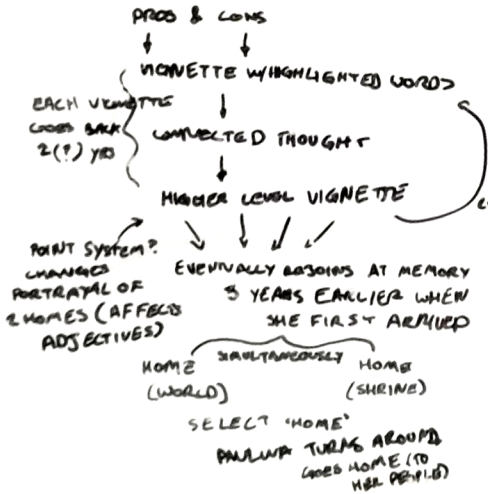 PROS & CONS
VIGNETTE W/HIGHLIGHTED WORDS
EACH VIGNETTE
GOES BACK
2(?) YRS
CONNECTED THOUGHT
HIGHER LEVEL VIGNETTE
POINT SYSTEM?
CHANGES
PORTRAYAL OF
2 HOMES (AFFECTS
ADJECTIVES)
EVENTUALLY REJOINS AT MEMORY
YEARS EARLIER WHEN
SHE FIRST ARRIVED
SIMULTANEOUSLY
HOME
(WORLD)
HOME
(SHRINE)
SELECT 'HOME'
PAULINA TURNS AROUND
GOES HOME (TO
HER PEOPLE)